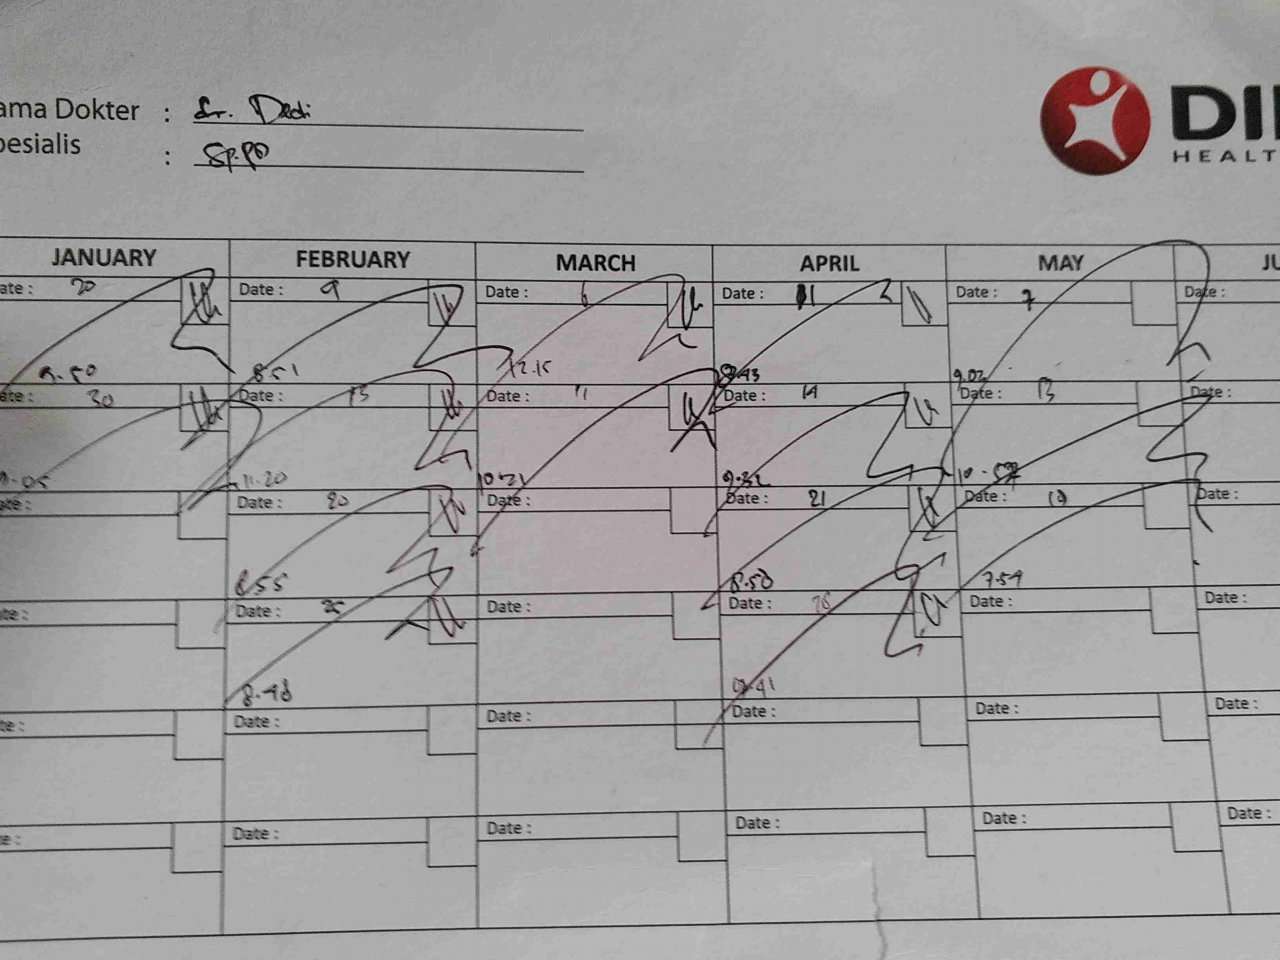 ama Dokter : Dr. Dedi
pesialis : Sp.PD
DI
HEALT
JANUARY FEBRUARY MARCH APRIL MAY JU
ate : 20 Date : 9 Date : 6 Date : 11 2 Date : 7 Date :
9.50 8.51 12.15 8.43 9.02
ate : 30 Date : 15 Date : 11 Date : 14 Date : 13 Date :
9.05 11.20 10.21 9.32 10.57
ate : Date : 20 Date : Date : 21 Date : 19 Date :
8.55 8.50 7.54
ate : Date : 25 Date : Date : 28 Date : Date :
8.48 9.41
te : Date : Date : Date : Date : Date :
e : Date : Date : Date : Date : Date :